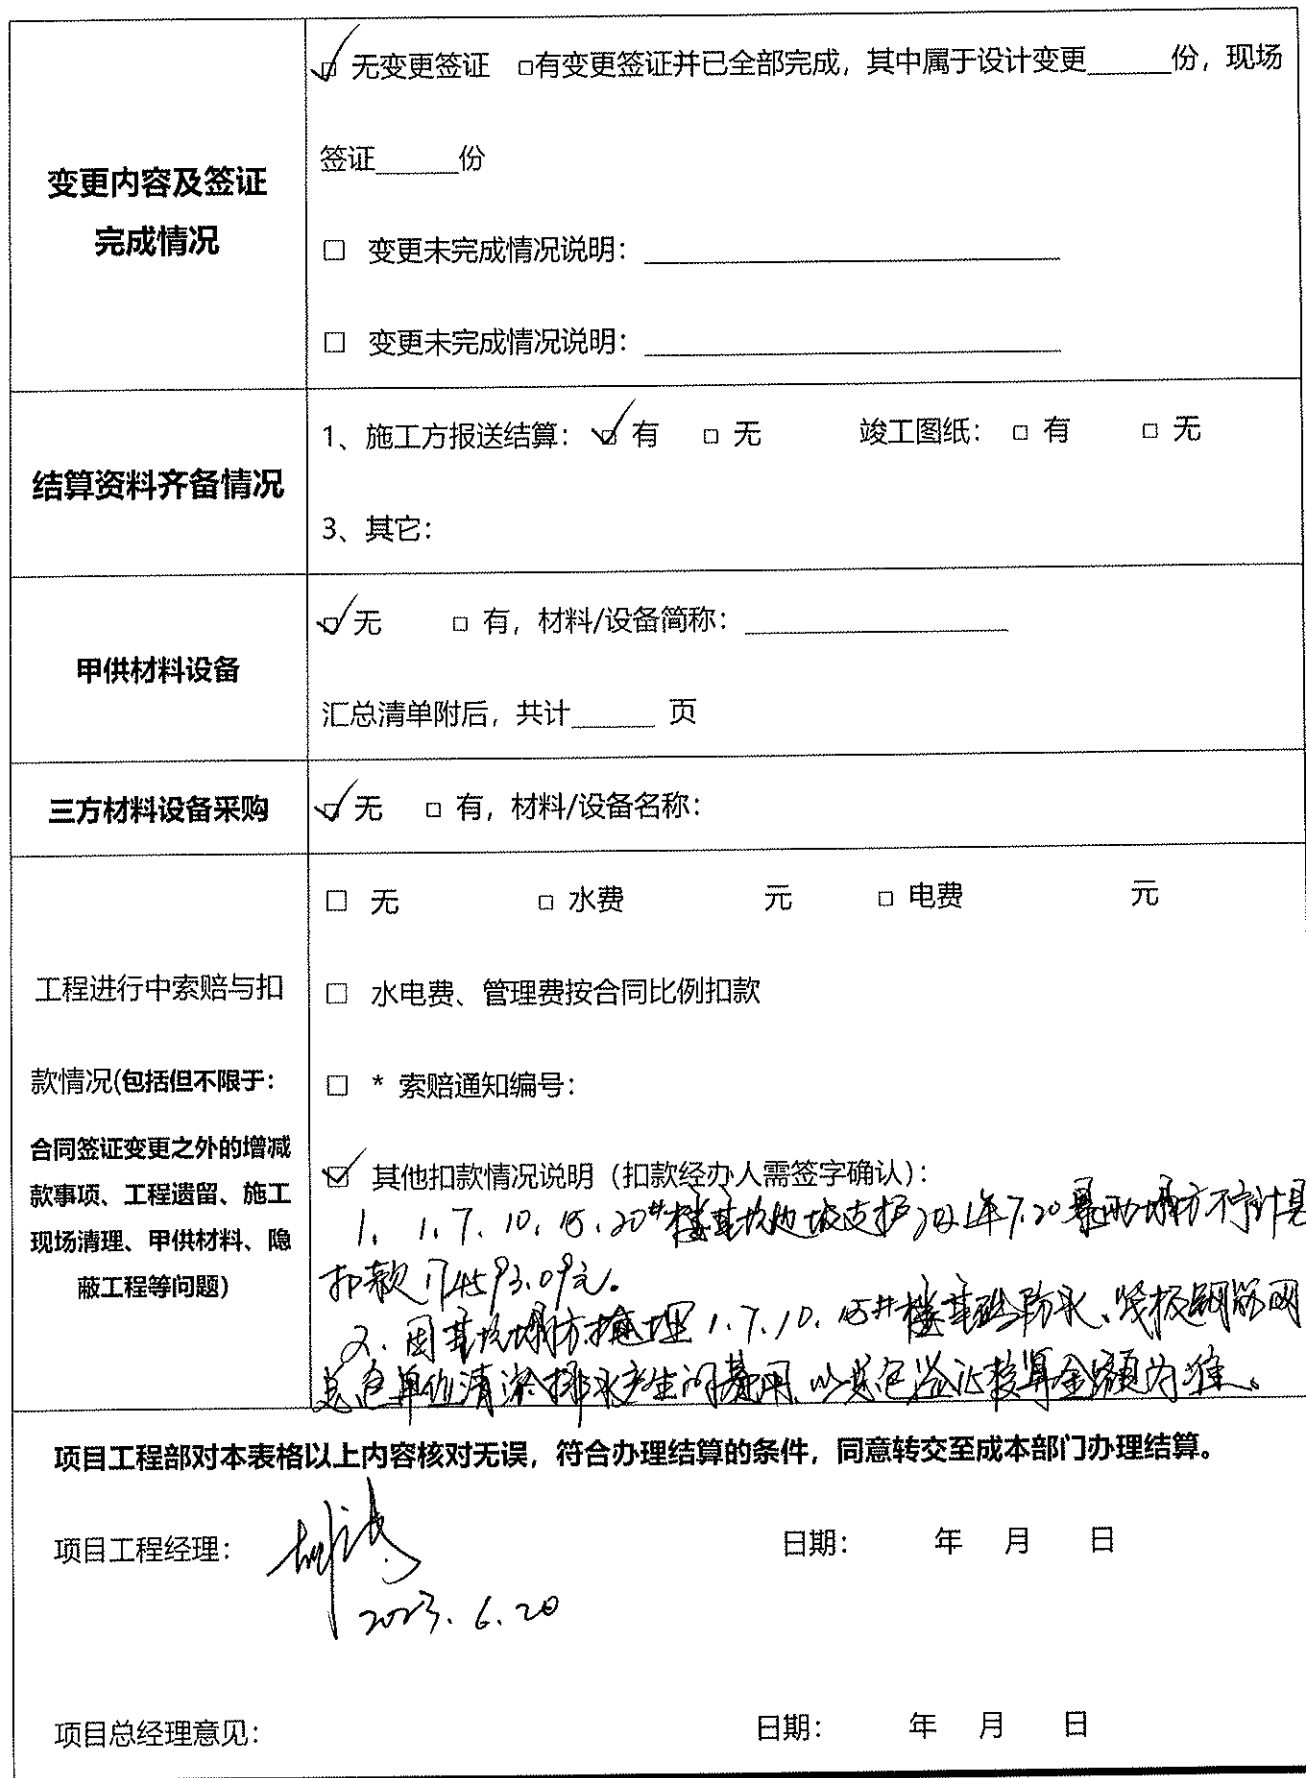 变更内容及签证
完成情况
☑ 无变更签证 □有变更签证并已全部完成，其中属于设计变更______份，现场
签证______份
□ 变更未完成情况说明：
□ 变更未完成情况说明：
结算资料齐备情况
1、施工方报送结算：☑ 有 □ 无 竣工图纸：□ 有 □ 无
3、其它：
甲供材料设备
☑ 无 □ 有，材料/设备简称：
汇总清单附后，共计______ 页
三方材料设备采购
☑ 无 □ 有，材料/设备名称：
工程进行中索赔与扣
款情况(包括但不限于：
合同签证变更之外的增减
款事项、工程遗留、施工
现场清理、甲供材料、隐
蔽工程等问题)
□ 无 □ 水费 元 □ 电费 元
□ 水电费、管理费按合同比例扣款
□ * 索赔通知编号：
☑ 其他扣款情况说明（扣款经办人需签字确认）：
1. 1.7.10.15.20#楼基坑边坡支护2021年7.20暴雨塌方不予计算
扣款174593.09元。
2. 因基坑塌方掩埋1.7.10.15#楼基础防水、筏板钢筋网
总包单位清淤排水产生的费用，以总包签证核算金额为准。
项目工程部对本表格以上内容核对无误，符合办理结算的条件，同意转交至成本部门办理结算。
项目工程经理： 日期： 年 月 日
2023.6.20
项目总经理意见： 日期： 年 月 日